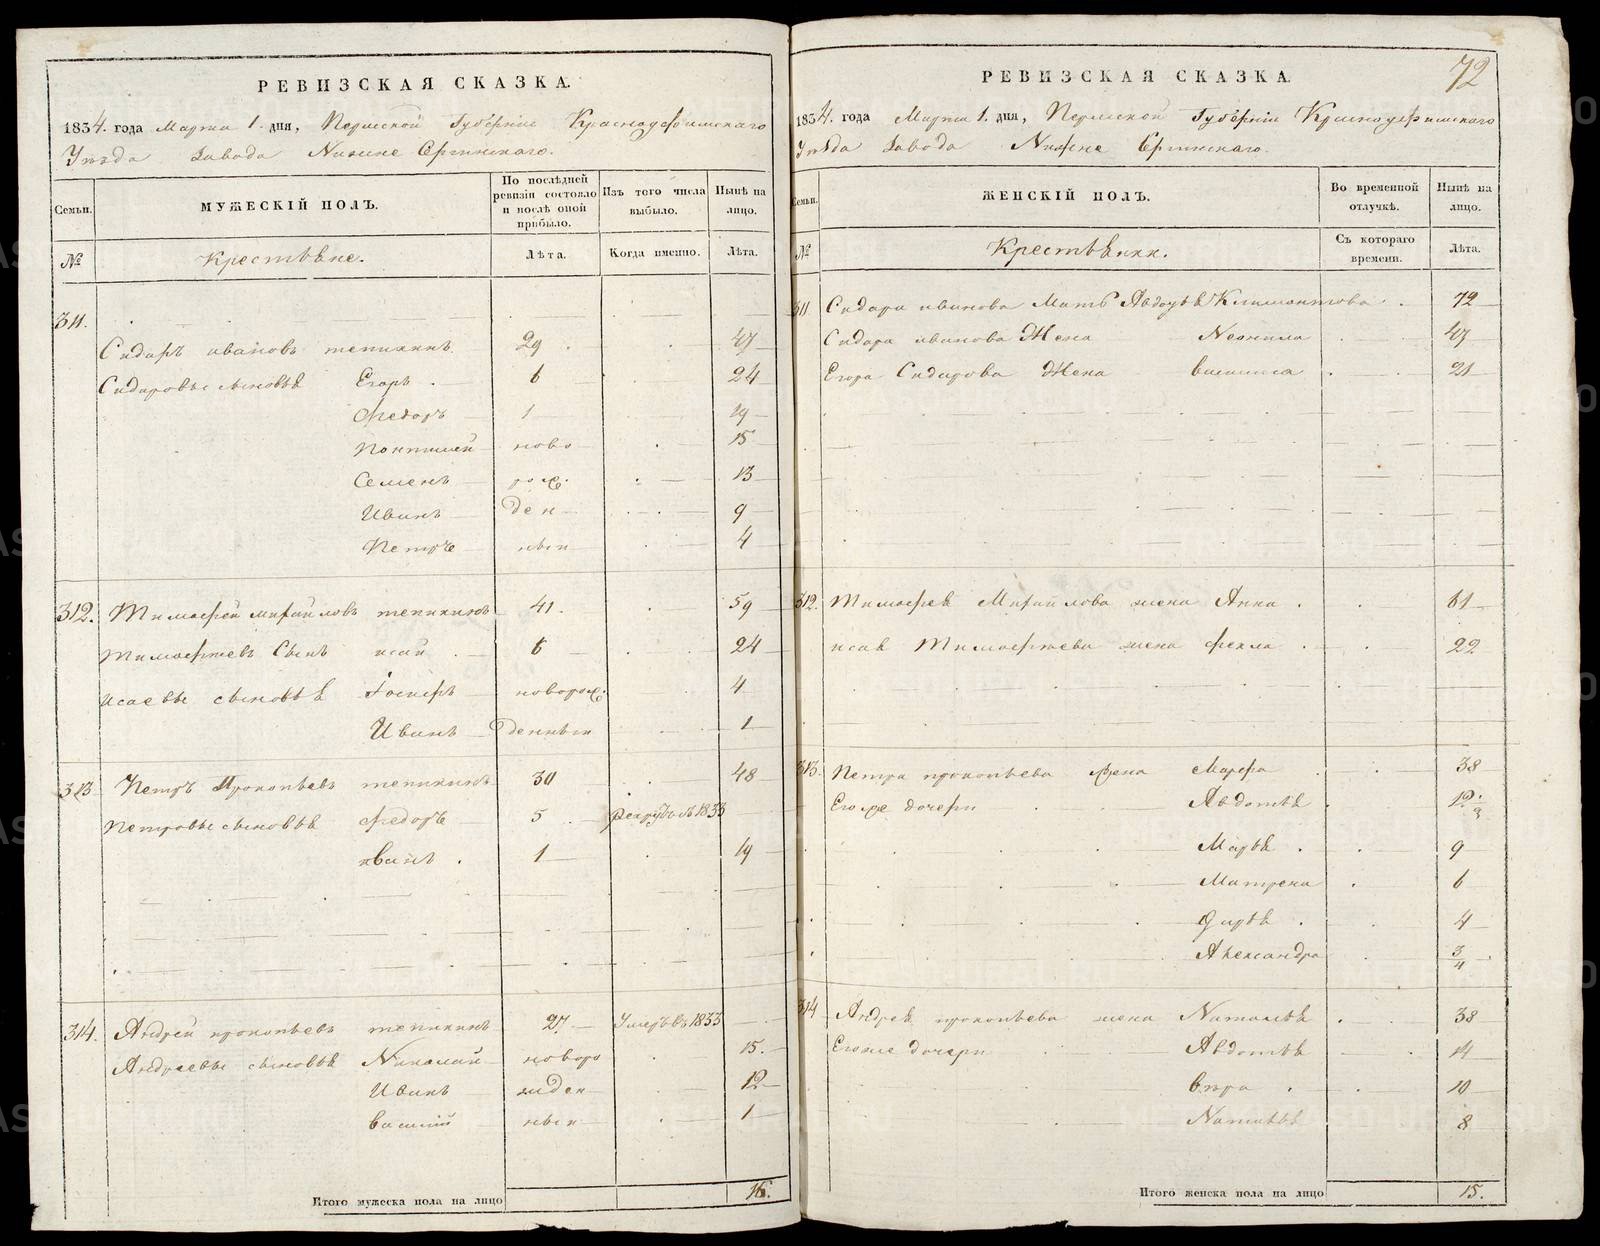 РЕВИЗСКАЯ СКАЗКА.
1834. года Марта 1. дня, Пермской Губерніи Красноуфимскаго
Уѣзда Завода Нижне Сергинскаго.
Семьи.
МУЖЕСКІЙ ПОЛЪ.
По послѣдней ревизіи состояло и послѣ оной прибыло.
Изъ того числа выбыло.
Нынѣ на лицо.
№
Крестьяне.
Лѣта.
Когда именно.
Лѣта.
311.
Сидаръ ивановъ тепикинъ 29 47
Сидаровы сыновья Егоръ 6 24
Федоръ 1 19
ново 15
Семенъ рож. 13
Иванъ ден 9
Петръ ныи 4
312. Тимофей михайловъ тепикинъ 41. 59
Тимофѣевъ Сынъ исай 6 24
Исаевы сыновья новорож. 4
Иванъ денныи 1
313 Петръ Прокопьевъ тепикинъ 30 48
Петровы сыновья Федоръ 5 Рекрутъ въ 1833
иванъ 1 19
314. Андрей прокопьевъ тепикинъ 27 Умеръ въ 1833
Андреевы сыновья Николай новоро 15.
Иванъ жден 12
василий ныи 1
Итого мужеска пола на лицо 16.
72
РЕВИЗСКАЯ СКАЗКА.
1834. года Марта 1. дня, Пермской Губерніи Красноуфимскаго
Уѣзда Завода Нижне Сергинскаго.
Семьи.
ЖЕНСКІЙ ПОЛЪ.
Во временной отлучкѣ.
Нынѣ на лицо.
№
Крестьянки.
Съ котораго времени.
Лѣта.
311 Сидара иванова Мать Авдотья Климантова 72
Сидара иванова Жена Неонила 47
Егора Сидарова Жена василиса 21
312. Тимофея Михайлова жена Анна 61
исая Тимофѣева жена фекла 22
313. Петра прокопьева Жена Марфа 38
Егоже дочери Авдотья 12
Марья 9
Матрена 6
Дарья 4
Александра 3/4
314 Андрея прокопьева жена Наталья 38
Егоже дочери Авдотья 14
вѣра 10
Наталья 8
Итого женска пола на лицо 15.